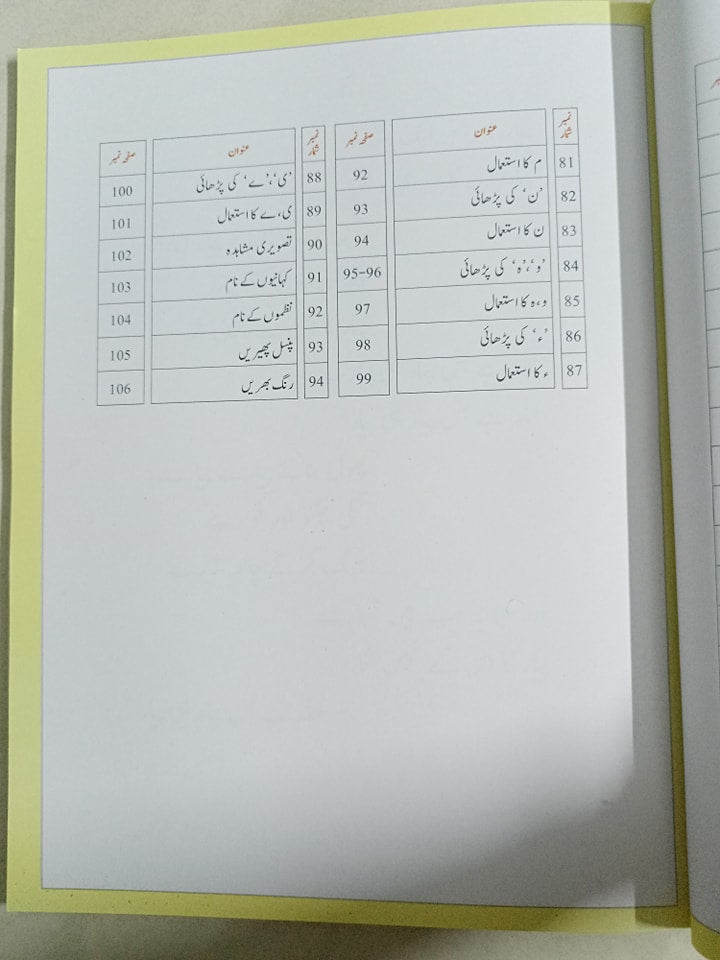 نمبر شمار عنوان صفحہ نمبر
81 م کا استعمال 92
82 ’ن‘ کی پڑھائی 93
83 ن کا استعمال 94
84 ’و‘،’ہ‘ کی پڑھائی 95-96
85 و،ہ کا استعمال 97
86 ’ء‘ کی پڑھائی 98
87 ء کا استعمال 99
نمبر شمار عنوان صفحہ نمبر
88 ’ی‘،’ے‘ کی پڑھائی 100
89 ی،ے کا استعمال 101
90 تصویری مشاہدہ 102
91 کہانیوں کے نام 103
92 نظموں کے نام 104
93 پنسل پھیریں 105
94 رنگ بھریں 106